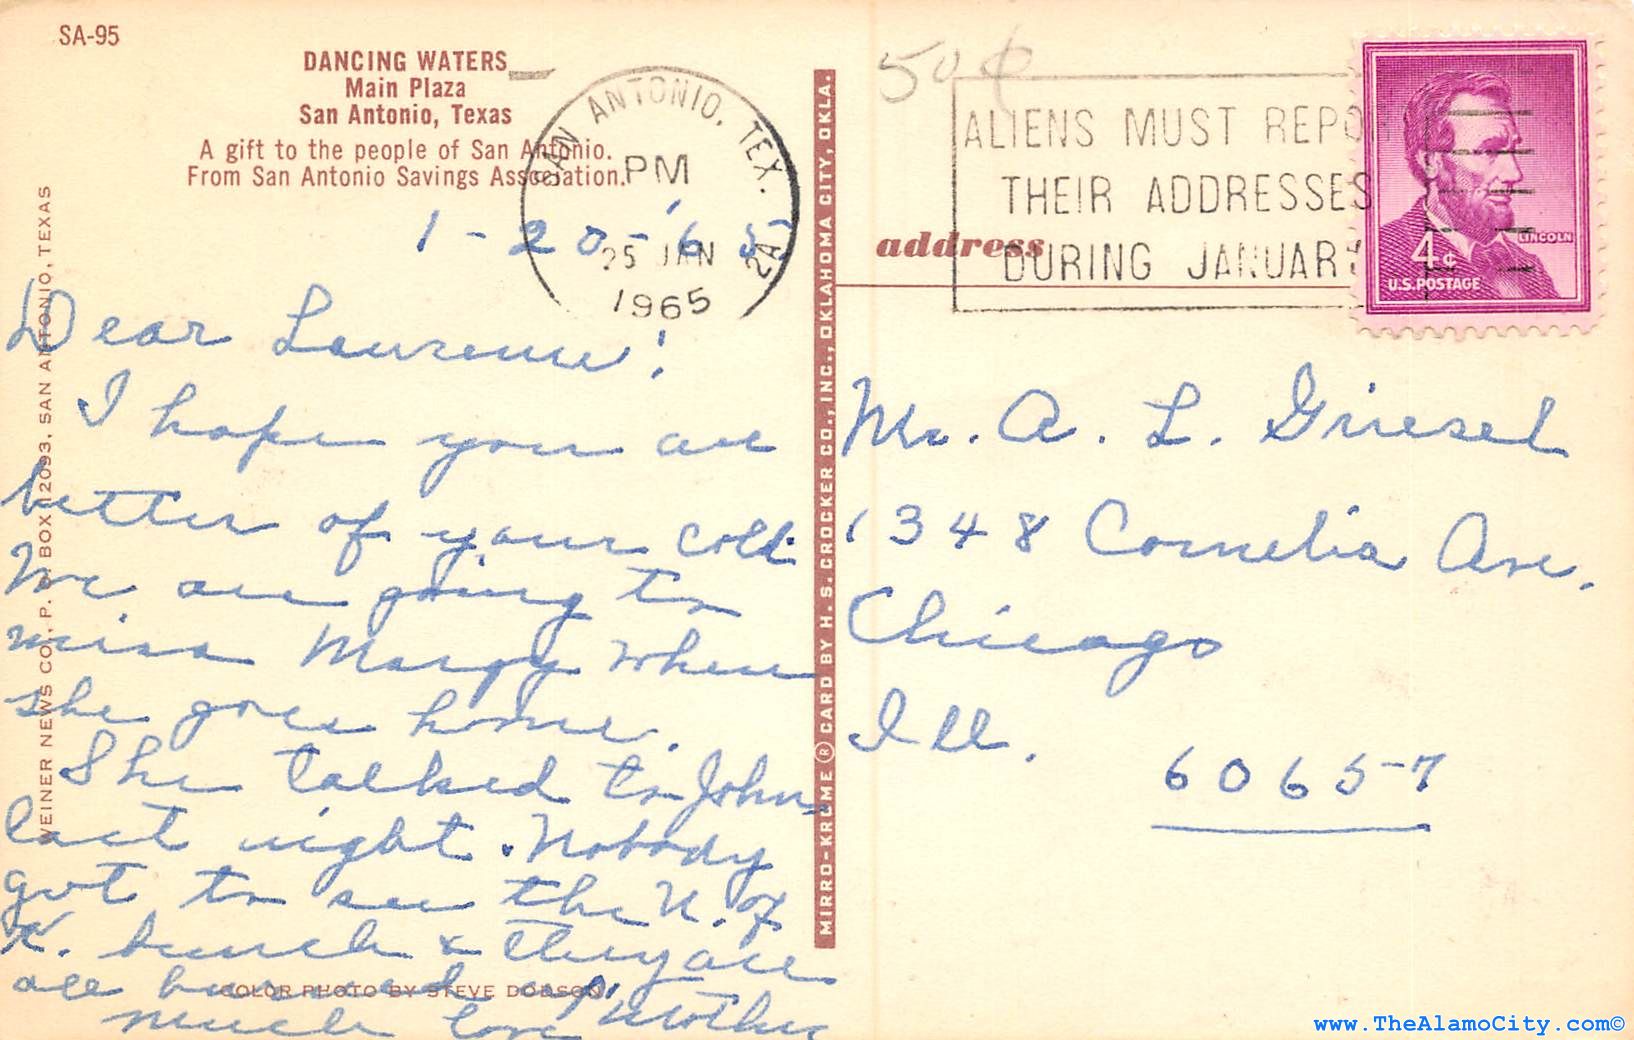 SA-95
DANCING WATERS
Main Plaza
San Antonio, Texas
A gift to the people of San Antonio.
From San Antonio Savings Association.
SAN ANTONIO, TEX.
PM
25 JAN
1965
2A
1-20-65
Dear Lawrence!
I hope you are
better of your cold.
We are going to
miss Margy when
she goes home.
She talked to John
last night. Nobody
got to see the U. of
bunch & they are
all up,
much love Mother
WEINER NEWS CO., P. O. BOX 12093, SAN ANTONIO, TEXAS
COLOR PHOTO BY STEVE DOBSON
MIRRO-KROME ® CARD BY H. S. CROCKER CO., INC., OKLAHOMA CITY, OKLA.
50¢
ALIENS MUST REPORT
THEIR ADDRESSES
DURING JANUARY
LINCOLN
4¢
U.S. POSTAGE
address
Mr. A. L. Griesel
1348 Cornelia Ave.
Chicago
Ill.
60657
www.TheAlamoCity.com©